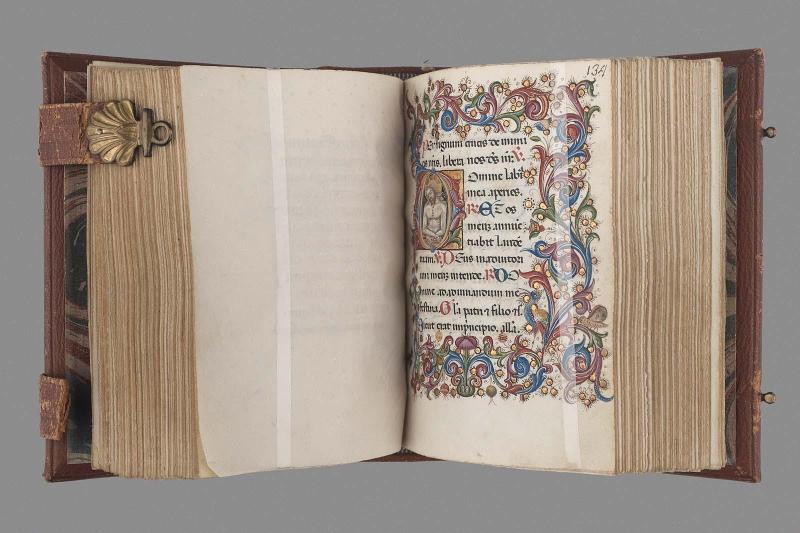 134
Per signum crucis de inimi
cis nris, libera nos ds nr: V.
Domine labia
mea aperies.
R. Et os
meum annūc
tiabit laudē
tuam. V. Deus in adiutori
um meum intende. R. Do
mine ad adiuuandum me
festina. Gla patri et filio et s.
Sicut erat in principio. alla.